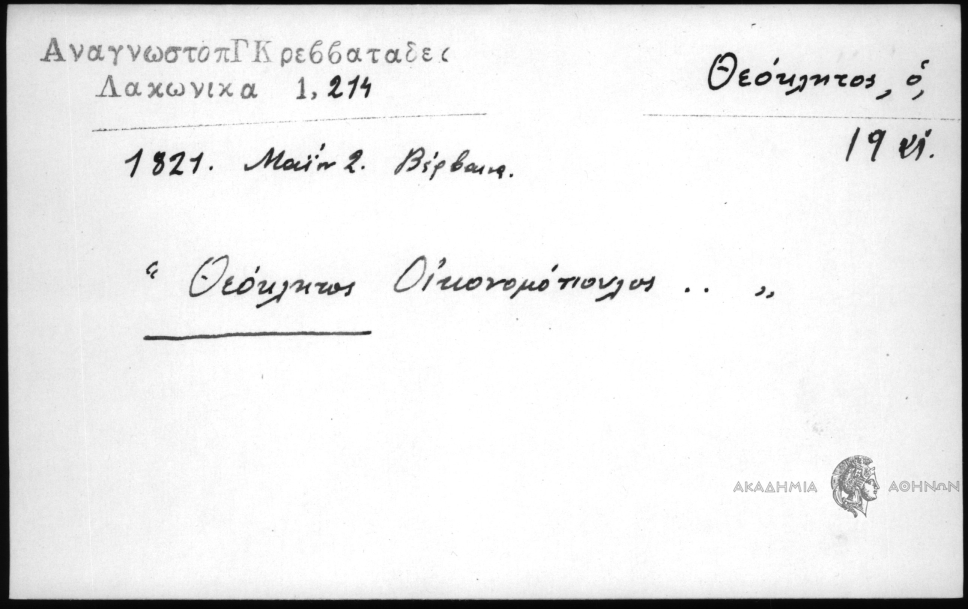 ΑναγνωστόπΓΚρεββαταδες
Λακωνικα 1, 214
Θεόκλητος, ὁ,
19 αἰ.
1821. Μαΐου 2. Βέρβαινα.
“ Θεόκλητος Οἰκονομόπουλος .. „
ΑΚΑΔΗΜΙΑ ΑΘΗΝΩΝ